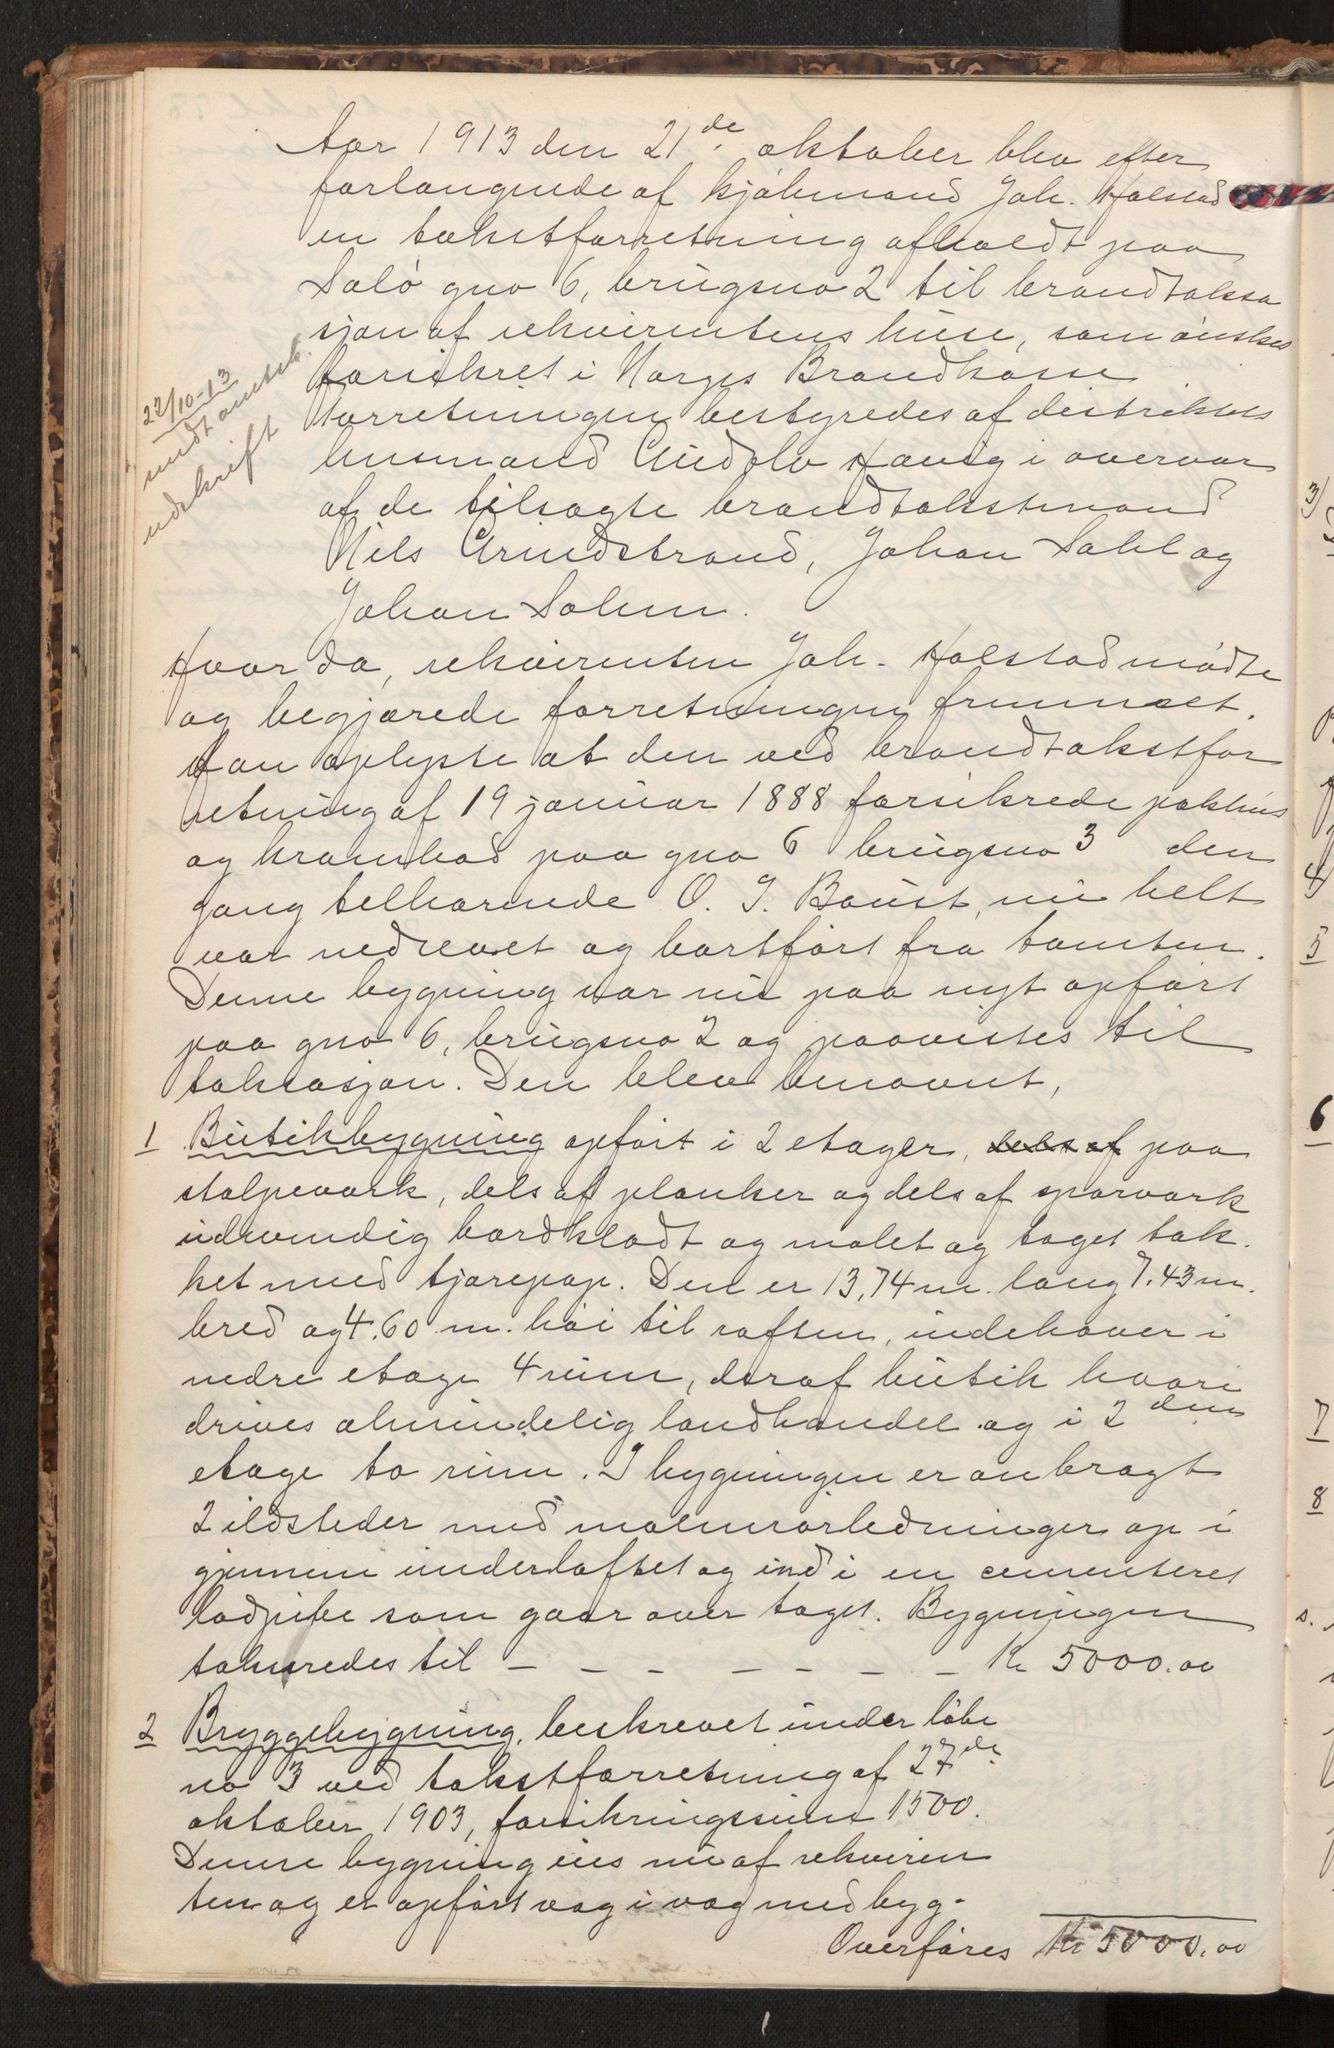 Aar 1913 den 21de oktober blev efter
forlangende af kjøbmand Joh. Halstad
en takstforretning afholdt paa
Salø gno 6, brugsno 2 til brandtaksa
sjon af rekvirentens huse, som ønskes
forsikret i Norges Brandkasse
Forretningen bestyredes af distriktets
lensmand Audolv Havig i overvær
af de tilsagte brandtakstmænd
Nils Grindstrand, Johan Sahl og
Johan Solem.
22/10-13
meddt amtsk.
udskrift
Hvor da, rekvirenten Joh. Halstad mødte
og begjærede forretningen fremmet.
Han oplyste at den ved brandtakstfor
retning af 19 januar 1888 forsikrede pakhus
og krambod paa gno 6 brugsno 3 den
gang tilhørende O. J. Baust, nu helt
var nedrevet og bortført fra tomten.
Denne bygning var nu paa nyt opført
paa gno 6, brugsno 2 og paavistes til
taksasjon. Den blev benævnt,
1 Butikbygning opført i 2 etager, dels af paa
stolpeværk, dels af planker og dels af sparværk
udvendig bordklædt og malet og taget tæk.
ket med tjærepap. Den er 13,74 m. lang 7.43 m.
bred og 4.60 m. høi til raften, indehaver i
nedre etage 4 rum, deraf butik hvori
drives almindelig landhandel og i 2den
etage to rum. I bygningen er anbragt
2 ildsteder med malmrørledninger op i
gjennem underloftet og ind i en cementeret
lodpibe som gaar over taget. Bygningen
takseredes til – – – – – – – Kr 5000.00
2 Bryggebygning, beskrevet under løbe
no 3 ved takstforretning af 27de
oktober 1903, forsikringssum 1500.
Denne bygning eies nu af rekviren
ten og er opført væg i væg med byg-
Overføres Kr 5000.00